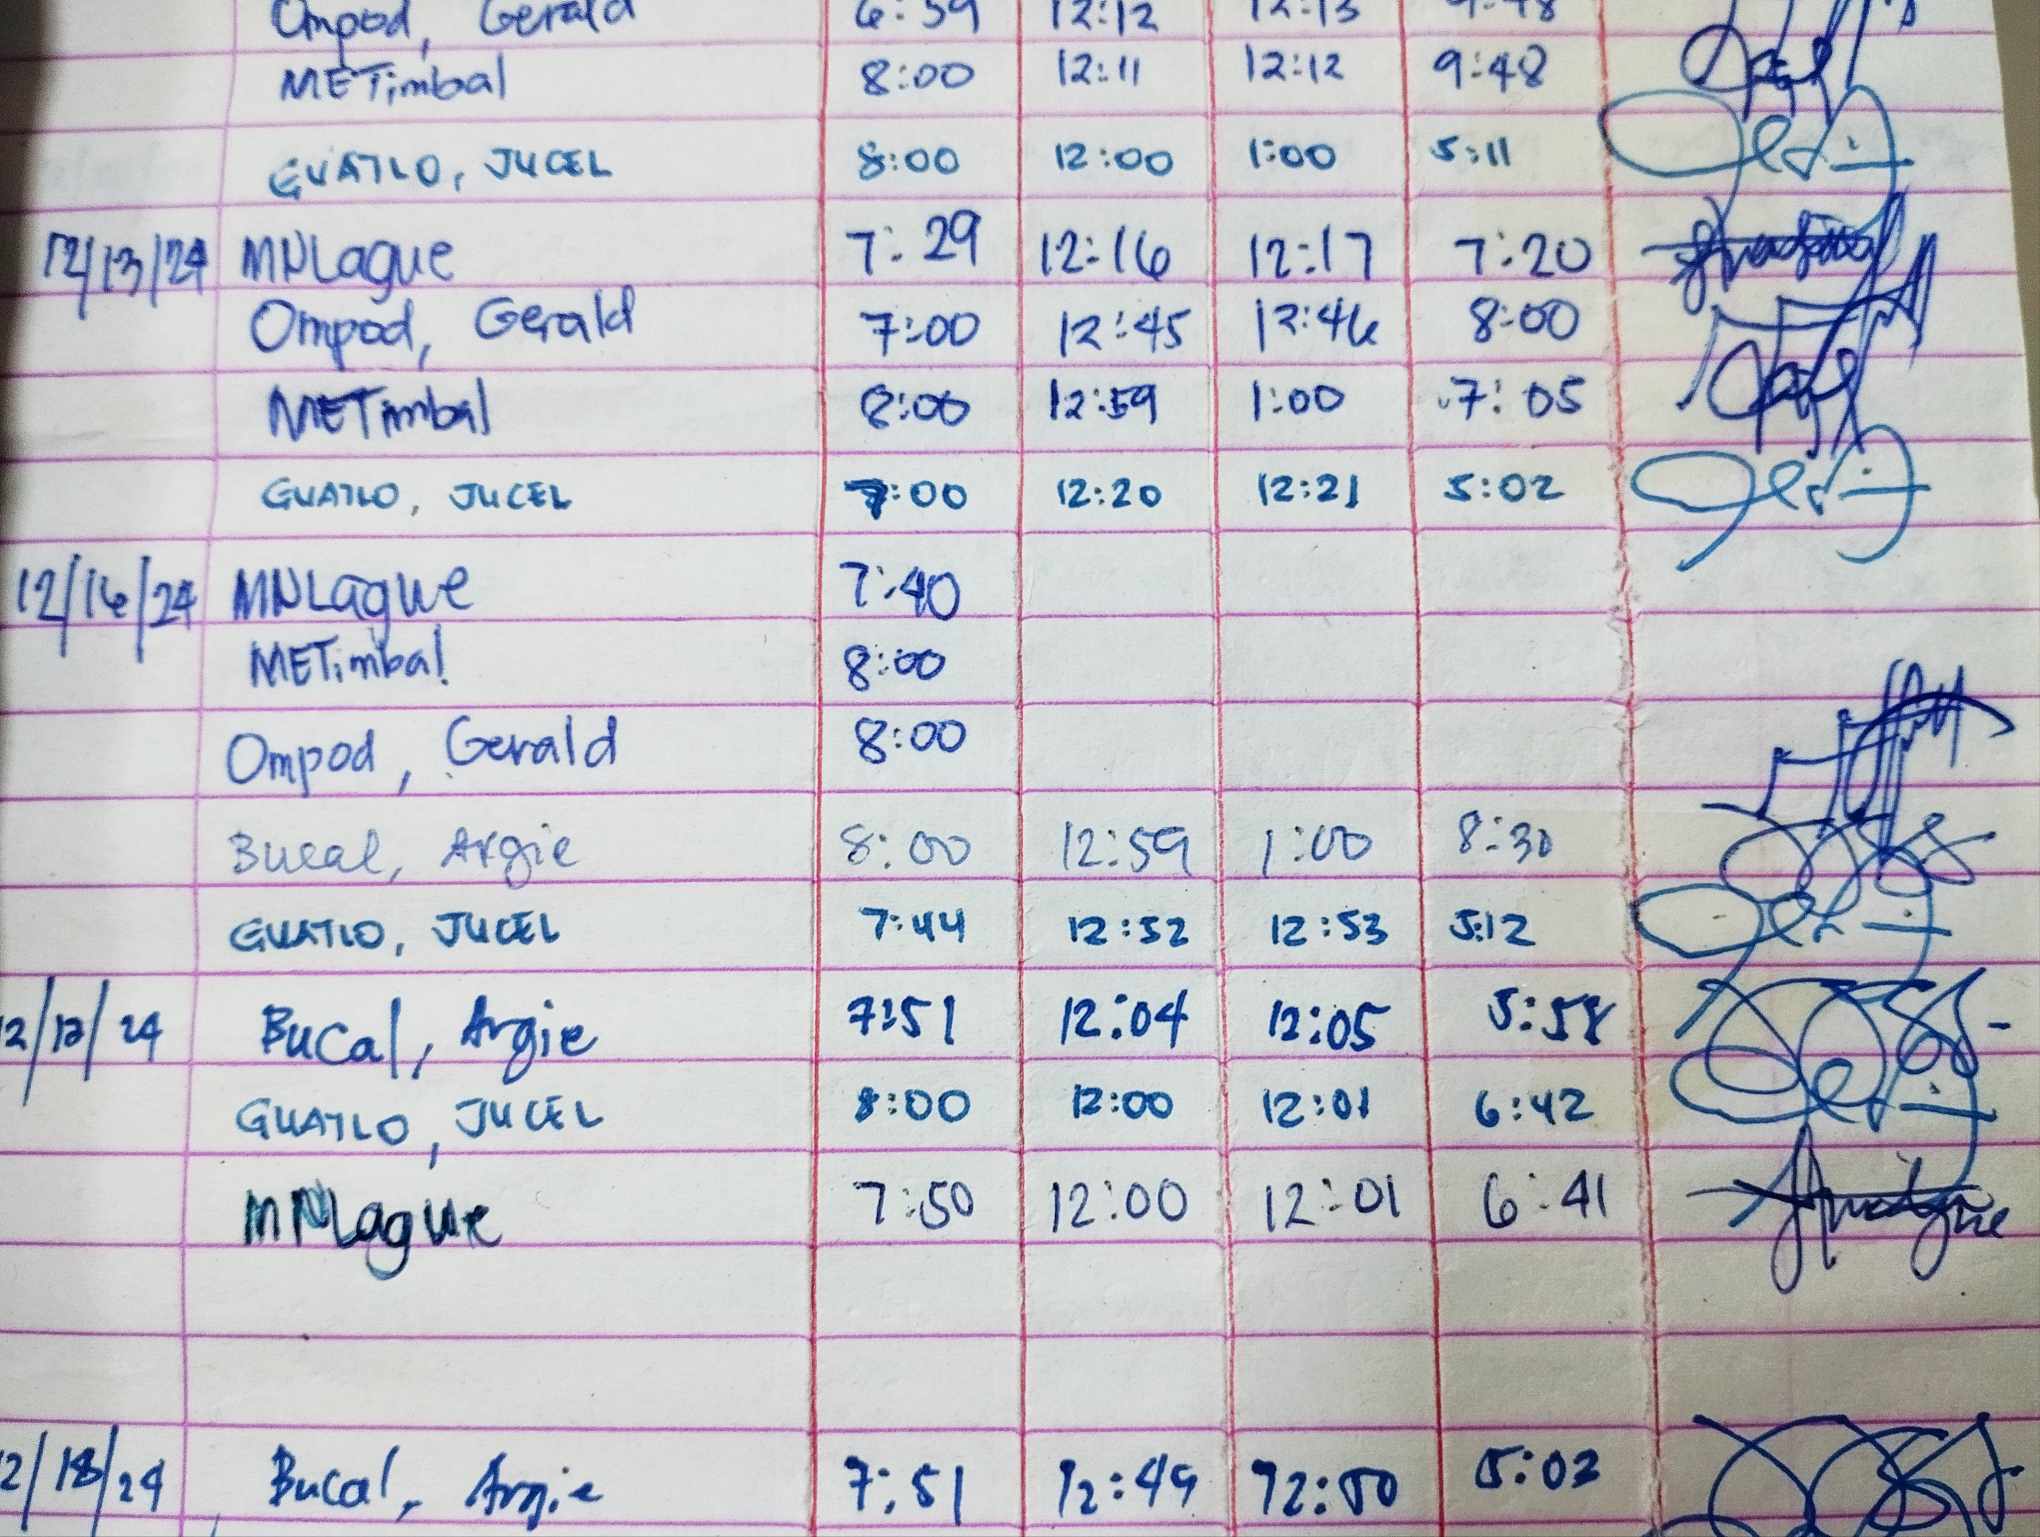 Ompod, Gerald 6:59 12:12 12:13 9:48
METimbal 8:00 12:11 12:12 9:48
GUATLO, JUCEL 8:00 12:00 1:00 5:11
12/13/24 MNLague 7:29 12:16 12:17 7:20
Ompod, Gerald 7:00 12:45 12:46 8:00
METimbal 8:00 12:59 1:00 7:05
GUATLO, JUCEL 7:00 12:20 12:21 5:02
12/16/24 MNLague 7:40
METimbal 8:00
Ompod, Gerald 8:00
Bucal, Argie 8:00 12:59 1:00 8:30
GUATLO, JUCEL 7:44 12:52 12:53 5:12
Bucal, Argie 7:51 12:04 12:05 5:58
GUATLO, JUCEL 8:00 12:00 12:01 6:42
MNLague 7:50 12:00 12:01 6:41
2/18/24 Bucal, Argie 7:51 12:49 12:50 5:02